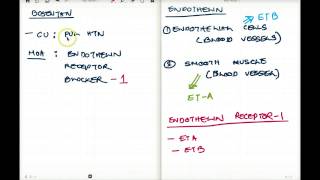 BOSENTAN
- CU : PUL HTN
MOA : ENDOTHELIN
RECEPTOR
BLOCKER - 1
ENDOTHELIN
ETB
① ENDOTHELIAL CELLS
(BLOOD VESSELS)
② SMOOTH MUSCLE
(BLOOD VESSEL)
ET-A
ENDOTHELIN RECEPTOR-1
- ETA
- ETB